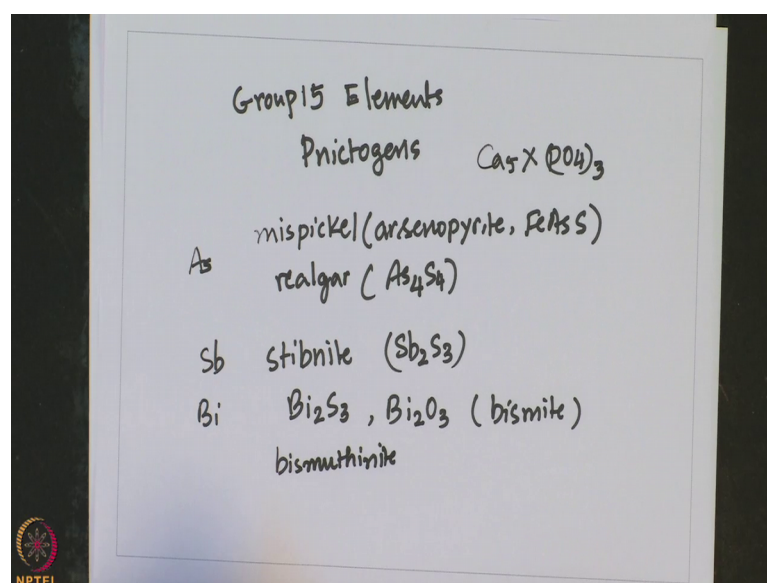 Group 15 Elements
Pnictogens Ca5X(PO4)3
mispickel (arsenopyrite, FeAsS)
As
realgar (As4S4)
Sb stibnite (Sb2S3)
Bi Bi2S3, Bi2O3 (bismite)
bismuthinite
NPTEL